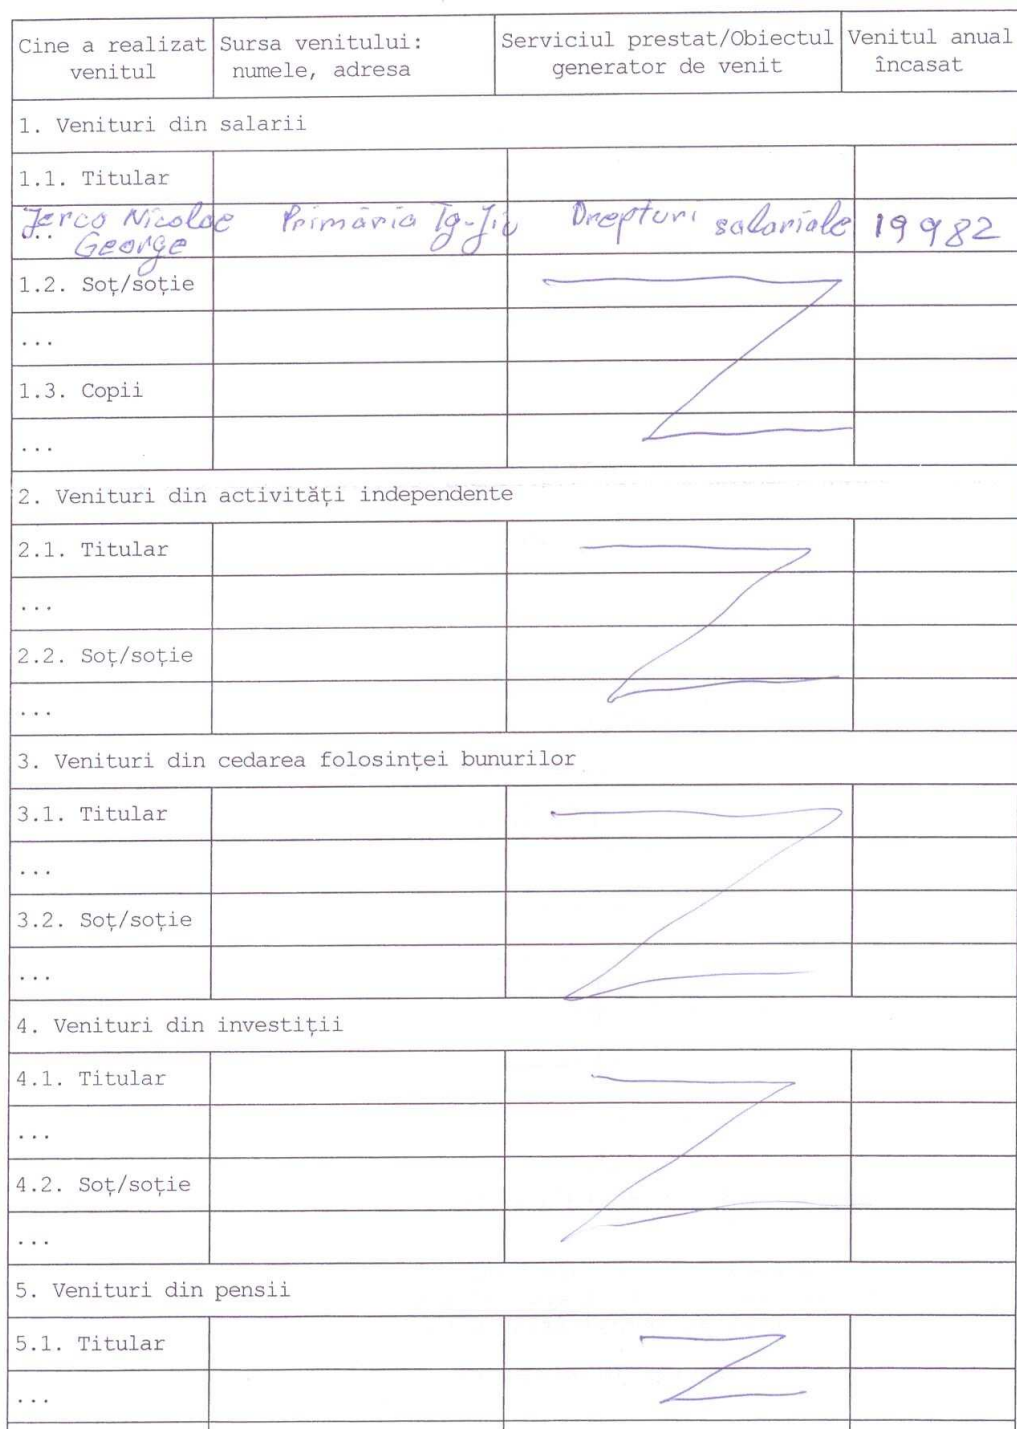 Cine a realizat venitul Sursa venitului: numele, adresa Serviciul prestat/Obiectul generator de venit Venitul anual încasat
1. Venituri din salarii
1.1. Titular
Jerco Nicolae George Primăria Tg-Jiu Drepturi salariale 19982
1.2. Soț/soție
...
1.3. Copii
...
2. Venituri din activități independente
2.1. Titular
...
2.2. Soț/soție
...
3. Venituri din cedarea folosinței bunurilor
3.1. Titular
...
3.2. Soț/soție
...
4. Venituri din investiții
4.1. Titular
...
4.2. Soț/soție
...
5. Venituri din pensii
5.1. Titular
...